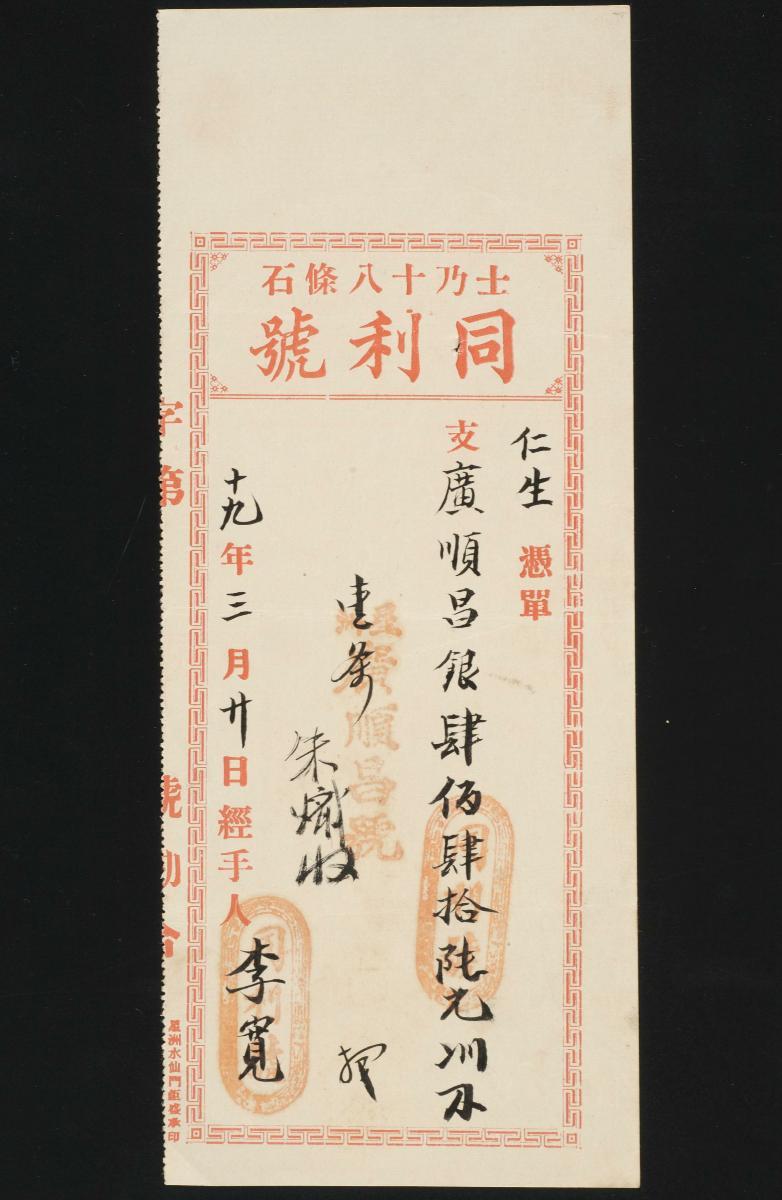 士乃十八條石
同利號
仁生憑單
支廣順昌銀肆佰肆拾陸元
朱熾收
經廣順昌號
十九年三月廿日經手人李寬
同利號
同利號
字第
號勘合
星洲水仙門鉅盛承印